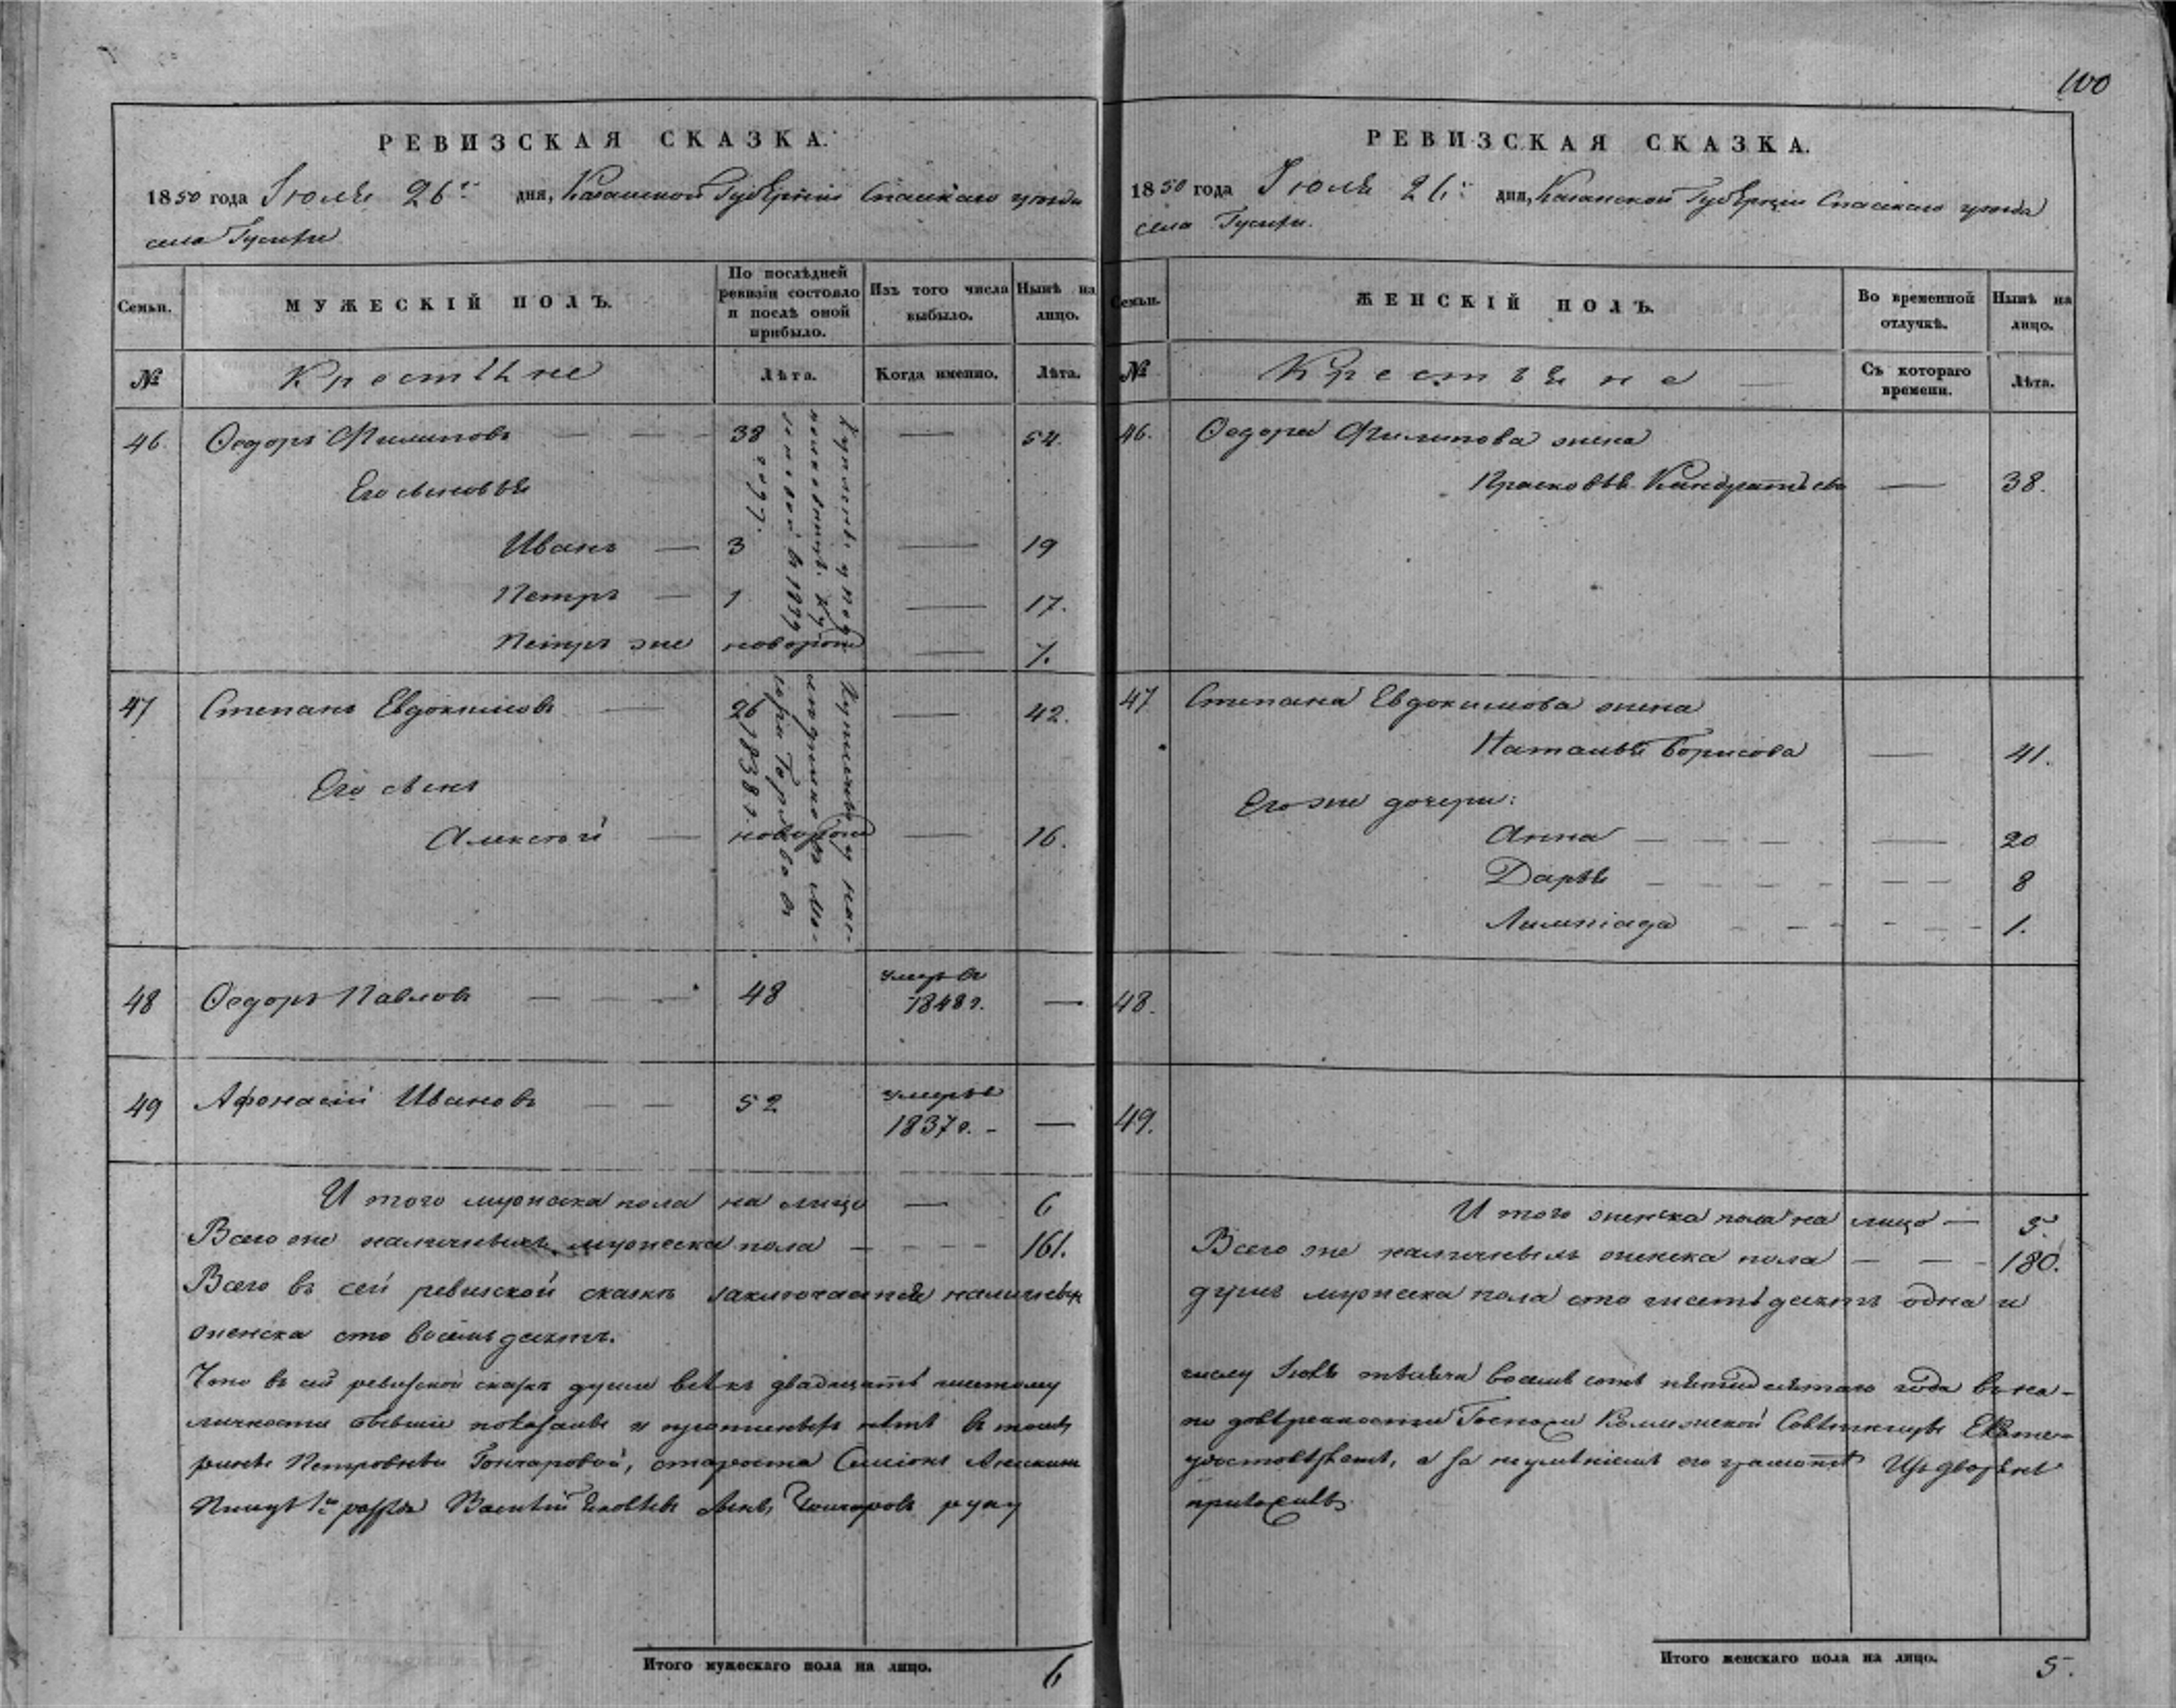 100
РЕВИЗСКАЯ СКАЗКА.
1850 года Іюля 26го дня, Казанской Губерніи Спаскаго уезда
села Гусихи
Семьи.
МУЖЕСКІЙ ПОЛЪ.
По послѣдней ревизіи состояло и послѣ оной прибыло.
Изъ того числа выбыло.
Нынѣ на лицо.
№
Крестьяне
Лѣта.
Когда именно.
Лѣта.
46. Ѳедоръ Филиповъ 38 54.
Его сыновья
Иванъ 3 19
Петръ 1 17.
Петръ же новорож 7.
Куплены у пол
в 1839
году.
47 Степанъ Евдокимовъ 26 42.
Его сынъ
Алексѣй новорож 16.
Куплены у нас-
1838 г.
48 Ѳедоръ Павловъ 48 умеръ въ 1848 г. —
49 Афонасій Ивановъ 52 умеръ в 1837 г. —
И того мужеска пола на лицо — 6
Всего же наличныхъ мужеска пола 161.
Всего въ сей ревизской сказкѣ заключается наличныхъ
женска сто восемьдесятъ.
Что въ сей ревизской сказкѣ души всѣ къ двадцать шестому
личности бывшіе показаны и нѣтъ в томъ
Петровны Гончаровой, староста Семіонъ
Василій сынъ Гончаровъ руку
Итого мужескаго пола на лицо. 6
РЕВИЗСКАЯ СКАЗКА.
1850 года Іюля 26: дня, Казанской Губерніи Спаскаго уезда
села Гусихи.
Семьи.
ЖЕНСКІЙ ПОЛЪ.
Во временной отлучкѣ.
Нынѣ на лицо.
№
Крестьяне
Съ котораго времени.
Лѣта.
46. Ѳедора Филипова жена
Прасковья Кандратьева — 38.
47 Степана Евдокимова жена
Наталья Борисова — 41.
Его же дочери:
Анна — 20
Дарья 8
Лимпіада 1.
48.
49.
И того женска пола на лицо — 5.
Всего же наличныхъ женска пола — 180.
душъ мужеска пола сто шестьдесятъ одна и
числу Іюля тысяча восемь сотъ пятидесятаго года въ на-
по довѣренности Госпожи Колежской Совѣтницы Екате-
удостовѣряетъ, а за неумѣніемъ его грамотѣ Изъ дворянъ
приложилъ.
Итого женскаго пола на лицо. 5.